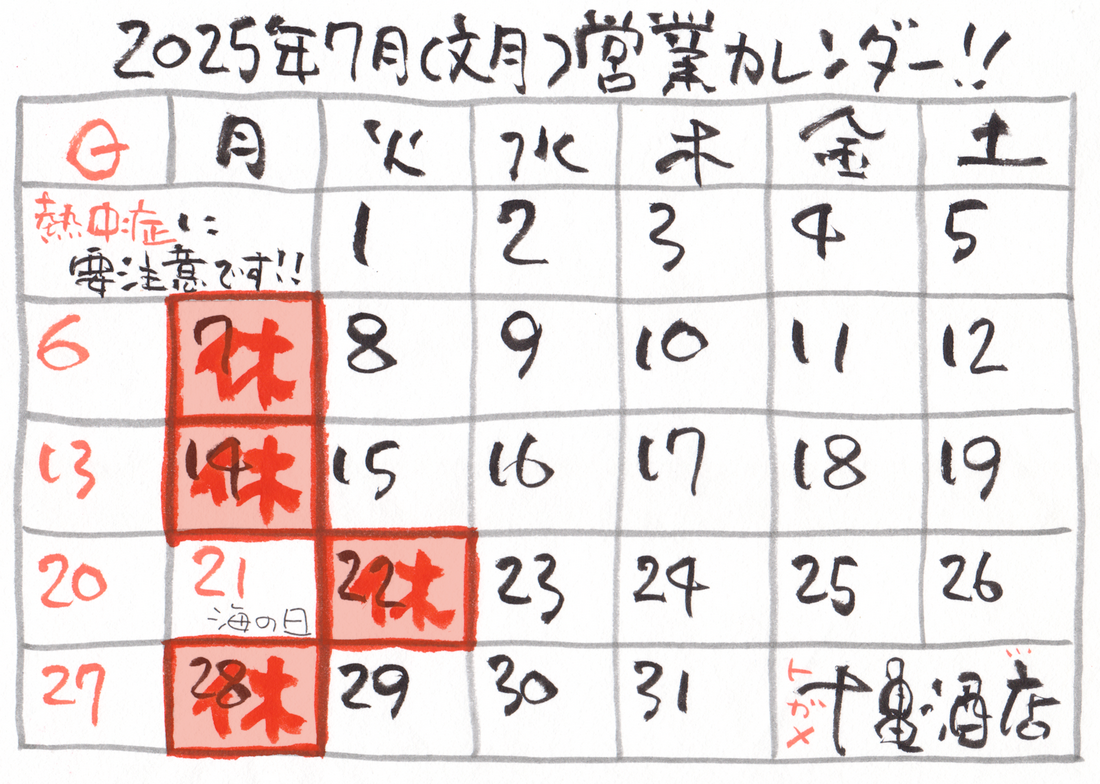 2025年7月(文月)営業カレンダー!!
日 月 火 水 木 金 土
熱中症に
要注意です!!
1 2 3 4 5
6 7休 8 9 10 11 12
13 14休 15 16 17 18 19
20 21 22休 23 24 25 26
海の日
27 28休 29 30 31
トガメ
十亀酒店